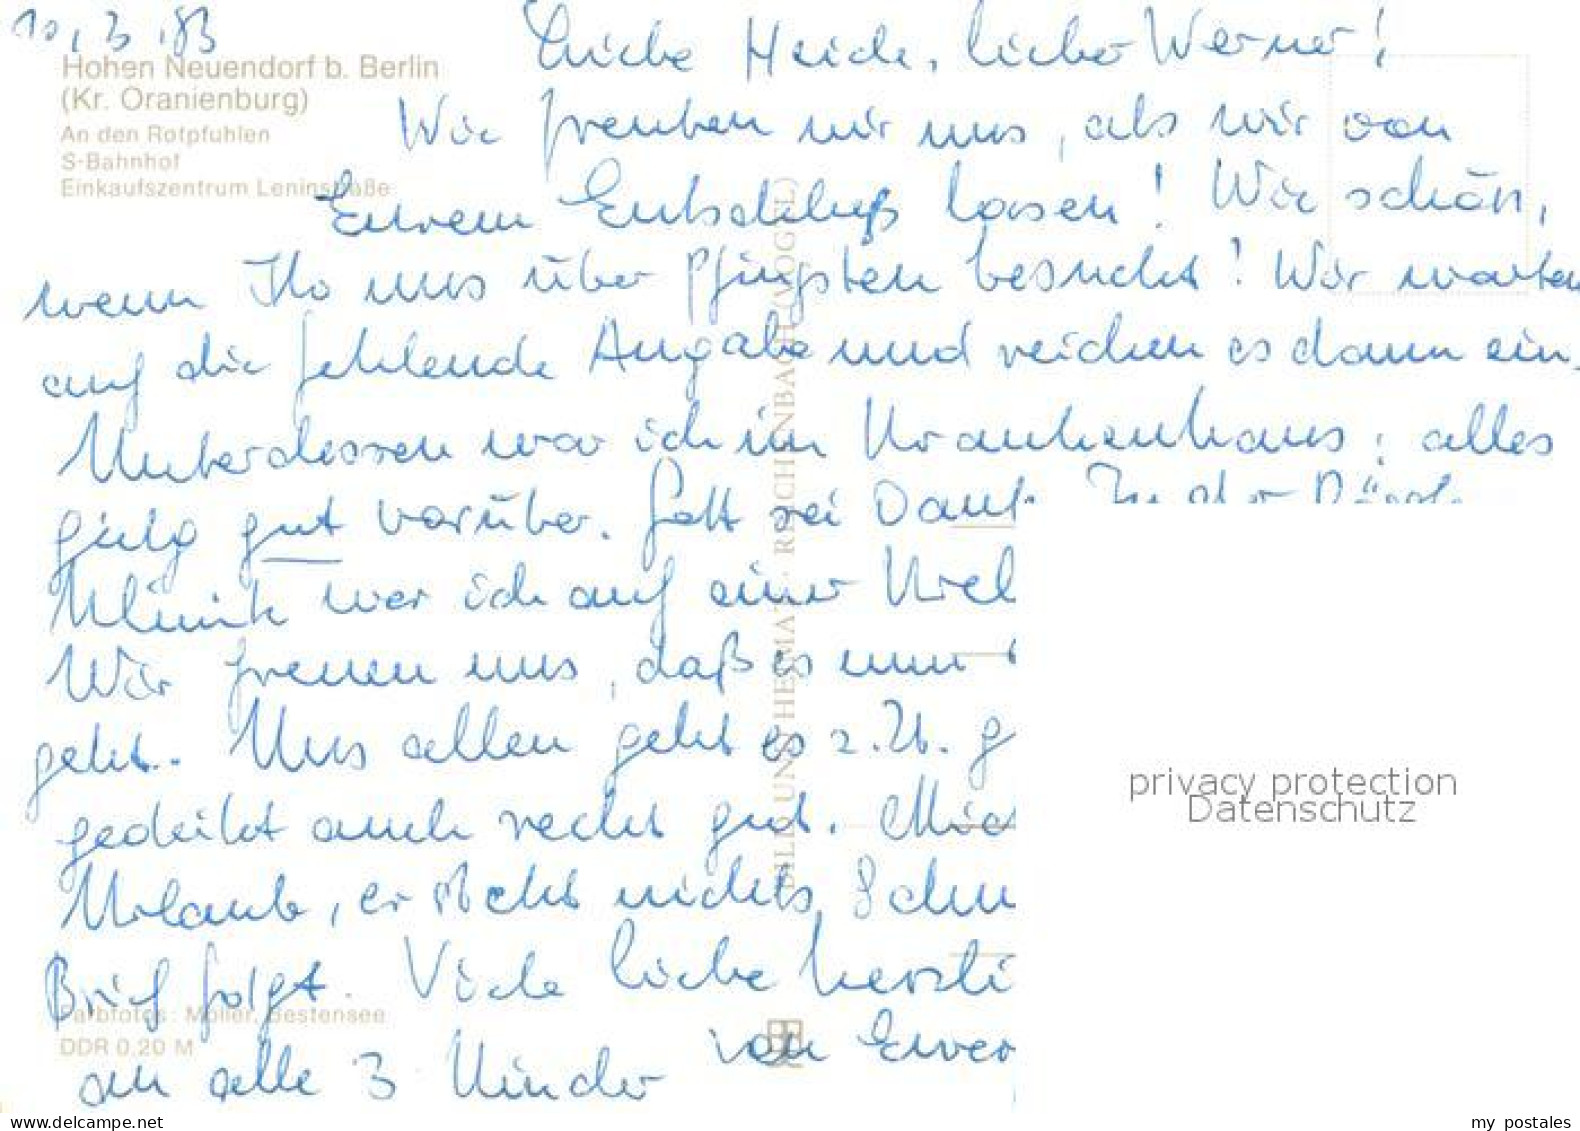 10.3.83
Hohen Neuendorf b. Berlin
(Kr. Oranienburg)
An den Rotpfuhlen
S-Bahnhof
Einkaufszentrum Leninstraße
Liebe Heide, lieber Werner!
Wie freuten wir uns, als wir von
Eurem Entschluß lasen! Wie schön,
wenn Ihr uns über Pfingsten besucht! Wir warten
auf die fehlende Angabe und reichen es dann ein.
Unterdessen war ich im Krankenhaus; alles
ging gut vorüber. Gott sei Dank In der
Klinik war ich auf einer
Wir freuen uns, daß es nun
geht. Uns allen geht es z.Zt. g
gedeiht auch recht gut.
Urlaub, er sticht nichts.
Brief folgt. Viele liebe herzli
an alle 3 Kinder von Eurer
BILD UND HEIMAT REICHENBACH (VOGTL)
Farbfotos: Müller, Bestensee
DDR 0,20 M
privacy protection
Datenschutz
delcampe.net
my_postales